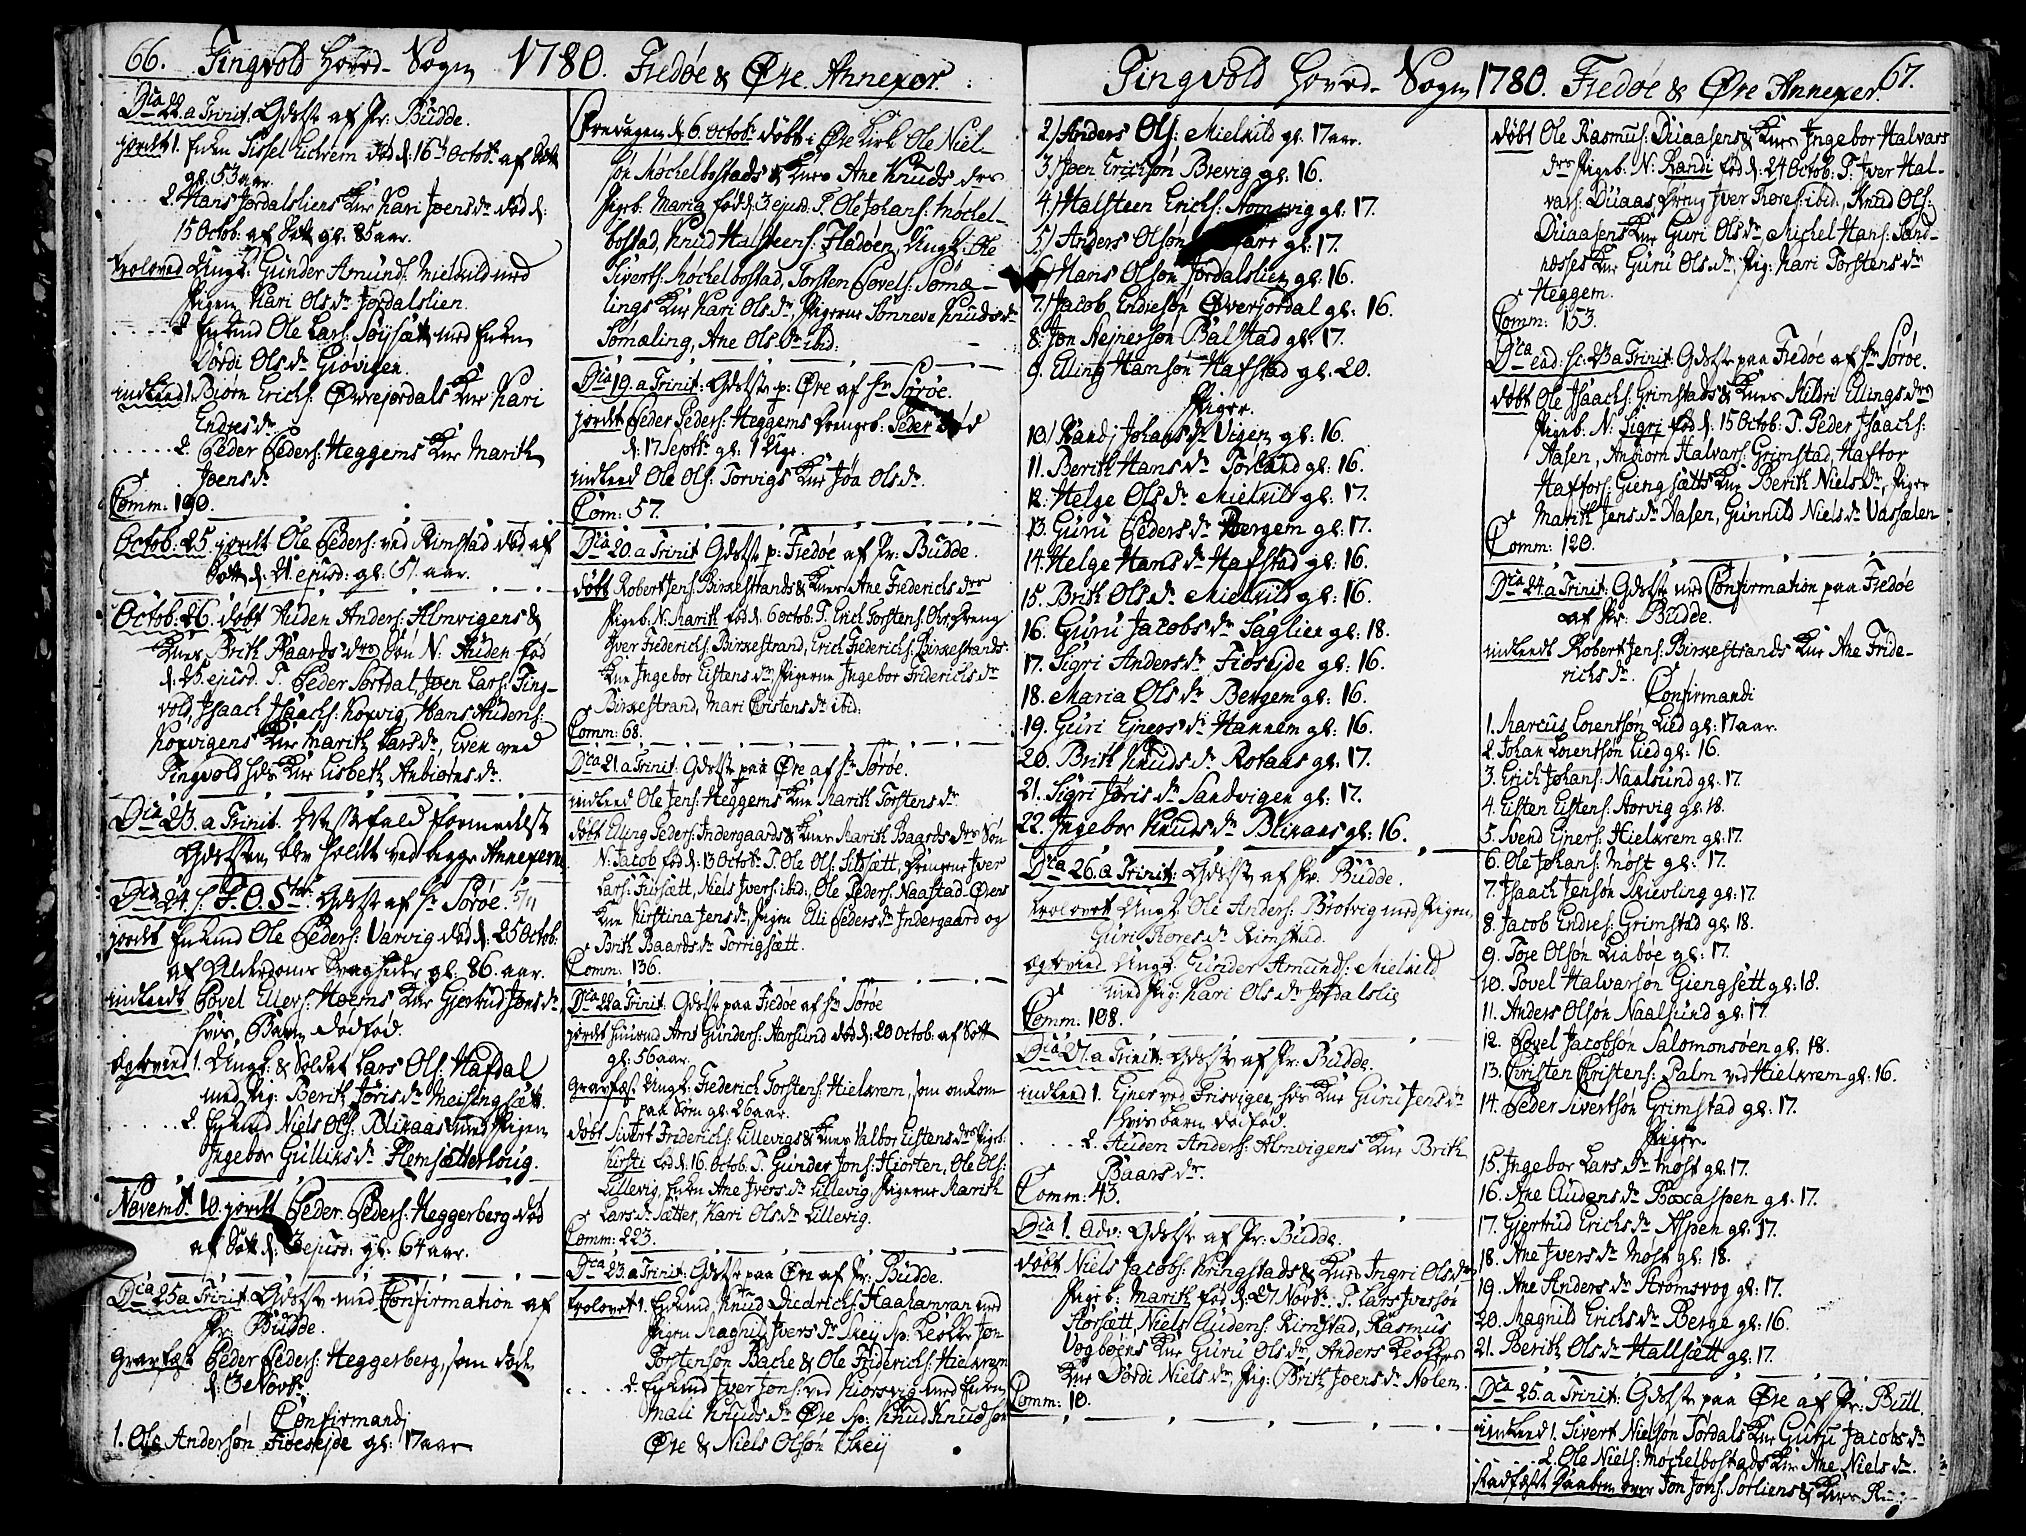 66. Tingvold Hoved-Sogn 1780. Fredøe & Øre Annexer.
Dca 22. a Trinit. Gdstte af Pr: Budde.
jordet 1. Enken Sissel Eichrem død d: 16de Octob: af Sott
gl: 53 aar.
2. Hans Jordalsliens Kue Kari Joens dr død d:
15 Octob: af Sott gl: 85 aar.
troloved Ungk: Gunder Amunds: Mielkild med
Pigen Kari Ols dr Jordalslien.
2 Enkemd Ole Lars: Søysæt med Enken
Dordi Ols dr Giøvigen.
indleed 1. Biørn Erichs: Øvrejordals Kue Kari
Endres dr
2. Peder Peders: Heggems Kue Marith
Joens dr
Comm: 190.
Octob: 25 jordet Ole Peders: ved Rimstad død af
Sott d: 21 ejusd: gl: 67 aar.
Octob: 26. døbt Auden Anders: Almvigens &
Kues Brit Baards drs Søn N: Auden fød
d: 25 ejusd. T. Peder Sørdal, Joen Lars: Ting-
vold, Isaach Isaachs: Korvig, Hans Anders:
Korvigens Kue Marith Lars dr, Even ved
Tingvold hds Kue Lisbeth Anbiørns dr
Dca 23. a Trinit. Messefald formedelst
Gdsten blev holdt ved begge Annexerne
Dca 24. s: F.O.Sto: Gdstte af Hr Sørøe. 5/11
jordet Enkemd Ole Peders: Varvig død d: 25 Octob:
af Alderdoms Svagheder gl: 86. aar.
indleedt Povel Ellevs: Hoems Kue Gjertrud Jons dr,
hvis Barn dødfød.
Egtevied 1. Ungk: & Soldat Lars Ols: Hafdal
med Pig: Berith Joris dr Meisingsæt.
2. Enkemd Niels Ols: Blikaas med Pigen
Ingebor Gulliks dr Flemsætterhoug.
Novembr 10. jordet Peder Peders: Heggerberg død
af Sott d: 3 ejusd: gl: 64 aar.
Dca 25 a Trinit. Gdstte med Confirmation af
Pr: Budde.
Gravfæst Peder Peders: Heggerberg, som døde
d: 3 Novbr.
Confirmandi
1. Ole Andersøn Fiøeseide gl: 17 aar
Onsdagen d: 6 Octobr døbt i Øre Kirk Ole Niel-
søn Møchelbostads & Kues Ane Knuds drs
Pigeb. Maria fød d: 3 ejusd. T. Ole Johans: Møchel-
bostad, Knud Halsteens: Fladøen, Ungk: Ole
Siverts: Møchelbostad, Torsten Povels: Sømæ-
lings Kue Kari Ols dr, Pigerne Sønneve Knuds dr
Sømæling, Ane Ols dr ibid:
Dca 19. a Trinit: Gdstte p: Øre af Hr Sørøe.
jordet Peder Peders: Heggems Drengeb. Peder død
d: 17 Septbr gl: 1 Uge.
indleed Ole Ols: Torvigs Kue Joa Ols dr
Com: 57.
Dca 20. a Trinit Gdstte p: Fredøe af Pr: Budde.
døbt Robert Jens: Birkestrands & Kues Ane Frederichs drs
Pigeb. N: Marith fød d. 6 Octob. T. Erich Torstens: Ohr, Dreng
Iver Frederichs: Birkestrand, Erich Frederichs: Birkestrands:
Kue Ingebor Eistens dr, Pigerne Ingebor Friderichs dr
Birkestrand, Mari Cristens dr ibid:
Comm: 68.
Dca 21 a Trinit: Gdstte paa Øre af Hr Sørøe.
indleed Ole Jens: Heggems Kue Marith Torstens dr
døbt Eling Peders: Indergaards & Kues Marith Baards drs Søn
N: Jacob fød d: 13 Octobr. T. Ole Ols: Sildsætt, Drengene Iver
Lars: Fiørsætt, Niels Ivers: ibid:, Ole Peders: Naastad-Ørens
Kue Kirstina Jens dr, Pigen Elli Peders dr Indergaard og
Brith Baards dr Torrigsætt.
Comm: 136.
Dca 22 a Trinit: Gdstte paa Fredøe af Hr Sørøe
jordet Huusmd Arnt Gunders: Aarslund død d: 20 Octob. af Sott
gl: 56 aar.
Gravfæst. Ungk: Frederich Torstens: Hielkrem, som omkom
paa Søen gl: 26 aar.
døbt Sivert Friderichs: Lillevigs & Kues Valbor Eistens drs Pigeb:
Kirsti fød d. 16 Octob. T. Gunder Jons: Hjorten, Ole Ols:
Lillevig, Enken Ane Ivers dr Lillevig, Pigerne Marith
Lars dr Sætter, Kari Ols dr Lillevig.
Comm: 223.
Dca 23. a Trinit: Gdstte paa Øre af Pr: Budde.
trolovet 1. Enkemd Knud Diedrichs: Haahamran med
Pigen Magnil Ivers dr Skey Sp: Klokker Jon
Torstensøn Bache & Ole Friderichs: Hielkrem
2. Enkemd Iver Jons: ved Kiorsvig med Enken
Mali Knuds dr Øre Sp: Knud Knudsøn
Øre & Niels Olsøn Skey
Tingvold Hoved-Sogn 1780. Fredøe & Øre Annexer. 67.
2) Anders Ols: Mielkild gl: 17 aar.
3) Joen Erichsøn Brevig gl: 16.
4) Halsteen Erichs: Stomsvig gl: 17.
5) Anders Olsøn gl: 17.
6) Hans Olsøn Jordalslien gl: 16.
7) Jacob Endresøn Øverjordal gl: 16.
8. Jon Rejnersøn Balstad gl: 17.
9. Elling Hansøn Hafstad gl: 20.
Piger.
10) Randj Johans dr Vigen gl: 16.
11. Berith Hans dr Torland gl: 16.
12. Helge Ols dr Mielkild gl: 17.
13. Guru Peders dr Bergem gl: 17.
14. Helge Hans dr Hafstad gl: 16.
15. Brith Ols dr Mielkild gl: 16.
16. Guru Jacobs dr Saglien gl: 18.
17. Sigri Anders dr Fiøsejde gl: 16.
18. Maria Ols dr Bergem gl: 16.
19. Guri Ejners dr Hannem gl: 16.
20. Brith Knuds dr Rotaas gl: 17.
21. Sigri Joris dr Sandvigen gl: 17.
22. Ingebor Knuds dr Blikaas gl: 16.
Dca 26. a Trinit: Gdstte af Pr: Budde.
trolovet Ungk: Ole Anders: Brotvig med Pigen
Guri Tores dr Rimstad.
Egtevied Ungk: Gunder Amunds: Mielkild
med Pig: Kari Ols dr Jordalslie
Comm: 108.
Dca 27. a Trinit: Gdstte af Pr: Budde.
indleed 1. Ejner ved Trisvigen, hds Kue Guru Jens dr
hvis barn dødfød.
2. Auden Anders: Almvigens Kue Brith
Baars dr.
Comm: 43.
Dca 1. Adv: Gdstte af Pr: Budde.
døbt Niels Jacobs: Kringstads & Kues Ingri Ols drs
Pigeb: Marith fød d: 27 Novbr. T. Lars Iversøn
Storsætt, Niels Audens: Rimstad, Rasmus
Vogbøens Kue Guru Ols dr, Anders Klokkers
Kue Dordi Niels dr, Pig: Brith Joens dr Nolen.
Comm: 10.
døbt Ole Rasmus: Duaasens & Kues Ingebor Halvars
drs Pigeb. N: Randi fød d: 24 Octob: T: Iver Hal-
vars: Duaas Dreng Iver Tores: ibid:, Knud Ols:
Duaasens Kue Guri Ols dr, Michel Hans: Sand-
næsses Kue Guru Ols dr, Pig: Kari Torstens dr
Heggem.
Comm: 153.
Dca ead: sc: 23 a Trinit: Gdstte paa Fredøe af Hr Sørøe.
døbt Ole Isaachs: Grimstads & Kues Sildri Ellings drs
Pigeb. N: Sigri fød d: 15 Octob: T. Peder Isaachs:
Aasen, Anbiørn Halvars: Grimstad, Haftor
Haftors: Giengsætts Kue Berith Niels dr, Piger
Marith Jens dr Aasen, Gunnild Niels dr Vassælen
Comm: 120.
Dca 24 a Trinit: Gdstte med Confirmation paa Fredøe
af Pr: Budde.
indleedt Robert Jens: Birkestrands Kue Ane Fride-
richs dr.
Confirmandi
1. Marcus Lorentsøn Lied gl: 17 aar.
2. Johan Lorentsøn Lied gl: 16.
3. Erich Johans: Naalsund gl: 17.
4. Eisten Eistens: Storvig gl: 18.
5. Svend Ejners: Hielkrem gl: 17.
6. Ole Johans: Most gl: 17.
7. Isaach Jensøn Skievling gl: 17.
8. Jacob Endres: Grimstad gl: 18.
9. Tore Olsøn Liabøe gl: 17.
10. Povel Halvarsøn Giengsett gl: 18.
11. Anders Olsøn Naalsund gl: 17.
12. Povel Jacobsøn Salomonsøen gl: 18.
13. Christen Christens: Palm ved Hielkrem gl: 16.
14. Peder Sivertsøn Grimstad gl: 17.
Piger.
15. Ingebor Lars dr Most gl: 17.
16. Ane Audens dr Boxaspen gl: 17.
17. Gjertrud Erichs dr Aspen gl: 17.
18. Ane Ivers dr Most gl: 18.
19. Ane Anders dr Stromsvog gl: 17.
20. Magnild Erichs dr Berge gl: 16.
21. Berith Ols dr Hallsætt gl: 17.
Dca 25. a Trinit: Gdstte paa Øre af Pr: Bull.
indleed 1. Sivert Nielsøn Tordals Kue Guru Jacobs dr
2. Ole Niels: Møchelbostads Kue Ane Niels dr.
Stadfæst Daaben over Jon Jons: Sørliens & Kues